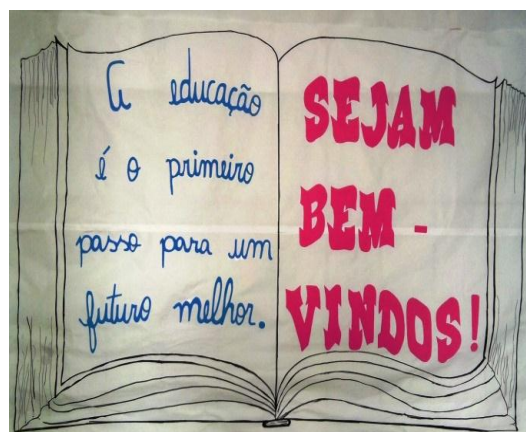 A educação
é o primeiro
passo para um
futuro melhor.
SEJAM
BEM -
VINDOS!